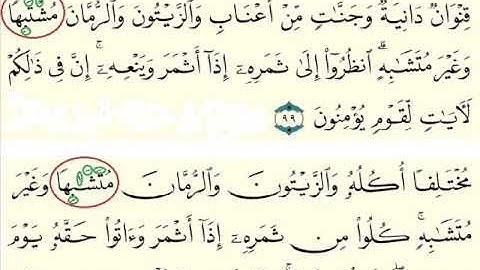 قِنْوَانٌ دَانِيَةٌ وَجَنَّٰتٍ مِّنْ أَعْنَابٍ وَالزَّيْتُونَ وَالرُّمَّانَ مُشْتَبِهًا
وَغَيْرَ مُتَشَٰبِهٍ ۗ انظُرُوٓا۟ إِلَىٰ ثَمَرِهِۦٓ إِذَآ أَثْمَرَ وَيَنْعِهِۦٓ ۚ إِنَّ فِى ذَٰلِكُمْ
لَءَايَٰتٍ لِّقَوْمٍ يُؤْمِنُونَ ٩٩
مُخْتَلِفًا أُكُلُهُۥ وَالزَّيْتُونَ وَالرُّمَّانَ مُتَشَٰبِهًا وَغَيْرَ
مُتَشَٰبِهٍ ۚ كُلُوا۟ مِن ثَمَرِهِۦٓ إِذَآ أَثْمَرَ وَءَاتُوا۟ حَقَّهُۥ يَوْمَ